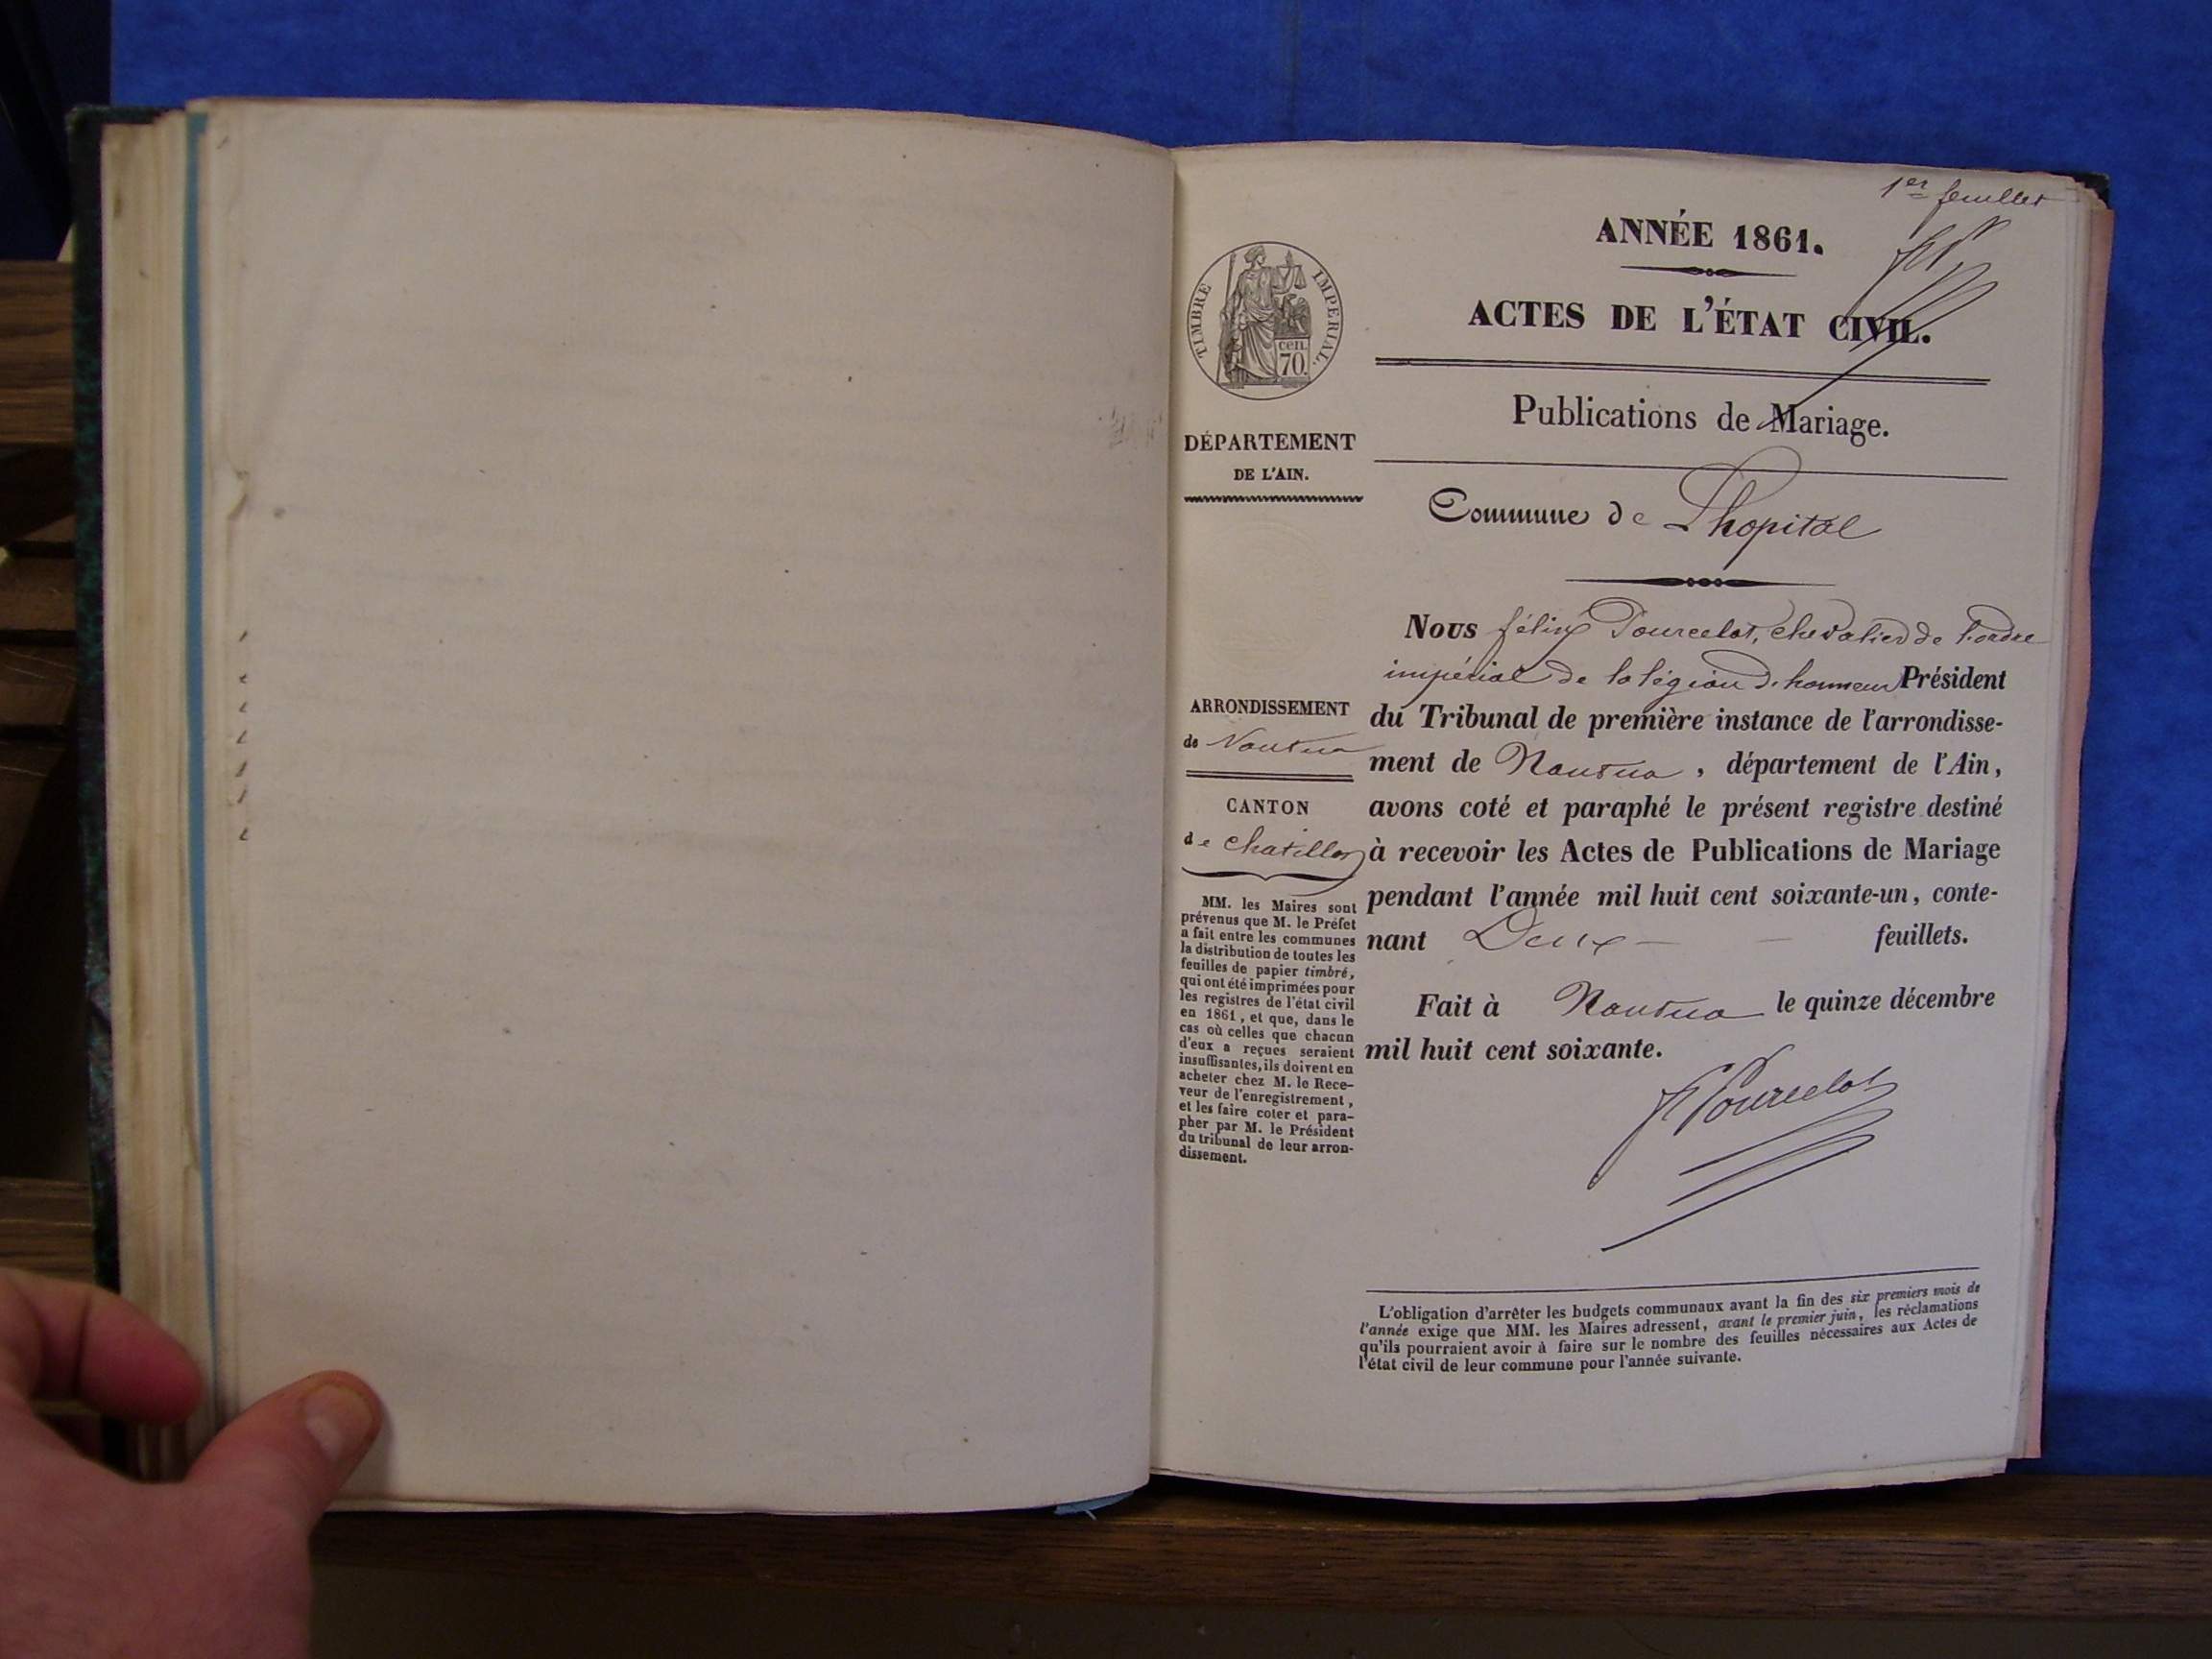 1er feuillet
ANNÉE 1861.
ACTES DE L'ÉTAT CIVIL.
Publications de Mariage.
Commune de Lhopital
TIMBRE IMPERIAL.
cen.
70.
DÉPARTEMENT
DE L'AIN.
ARRONDISSEMENT
de Nantua
CANTON
de Chatillon
MM. les Maires sont
prévenus que M. le Préfet
a fait entre les communes
la distribution de toutes les
feuilles de papier timbré,
qui ont été imprimées pour
les registres de l'état civil
en 1861, et que, dans le
cas où celles que chacun
d'eux a reçues seraient
insuffisantes, ils doivent en
acheter chez M. le Rece-
veur de l'enregistrement,
et les faire coter et para-
pher par M. le Président
du tribunal de leur arron-
dissement.
Nous félix Pourcelot, chevalier de l'ordre
impérial de la légion d'honneur Président
du Tribunal de première instance de l'arrondisse-
ment de Nantua, département de l'Ain,
avons coté et paraphé le présent registre destiné
à recevoir les Actes de Publications de Mariage
pendant l'année mil huit cent soixante-un, conte-
nant Deux — — feuillets.
Fait à Nantua le quinze décembre
mil huit cent soixante.
F Pourcelot
L'obligation d'arrêter les budgets communaux avant la fin des six premiers mois de
l'année exige que MM. les Maires adressent, avant le premier juin, les réclamations
qu'ils pourraient avoir à faire sur le nombre des feuilles nécessaires aux Actes de
l'état civil de leur commune pour l'année suivante.